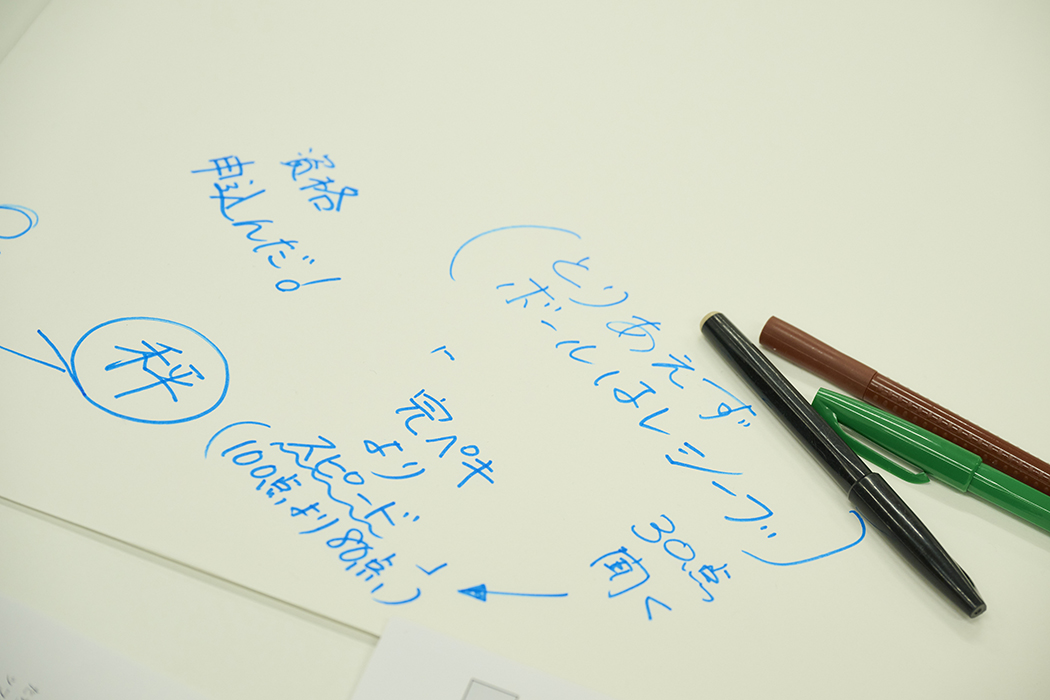 資格
申込んだ!
秤
(とりあえず
ボールはレシーブ)
「完ペキ
より
スピード」
(100点より80点)
30点
聞く